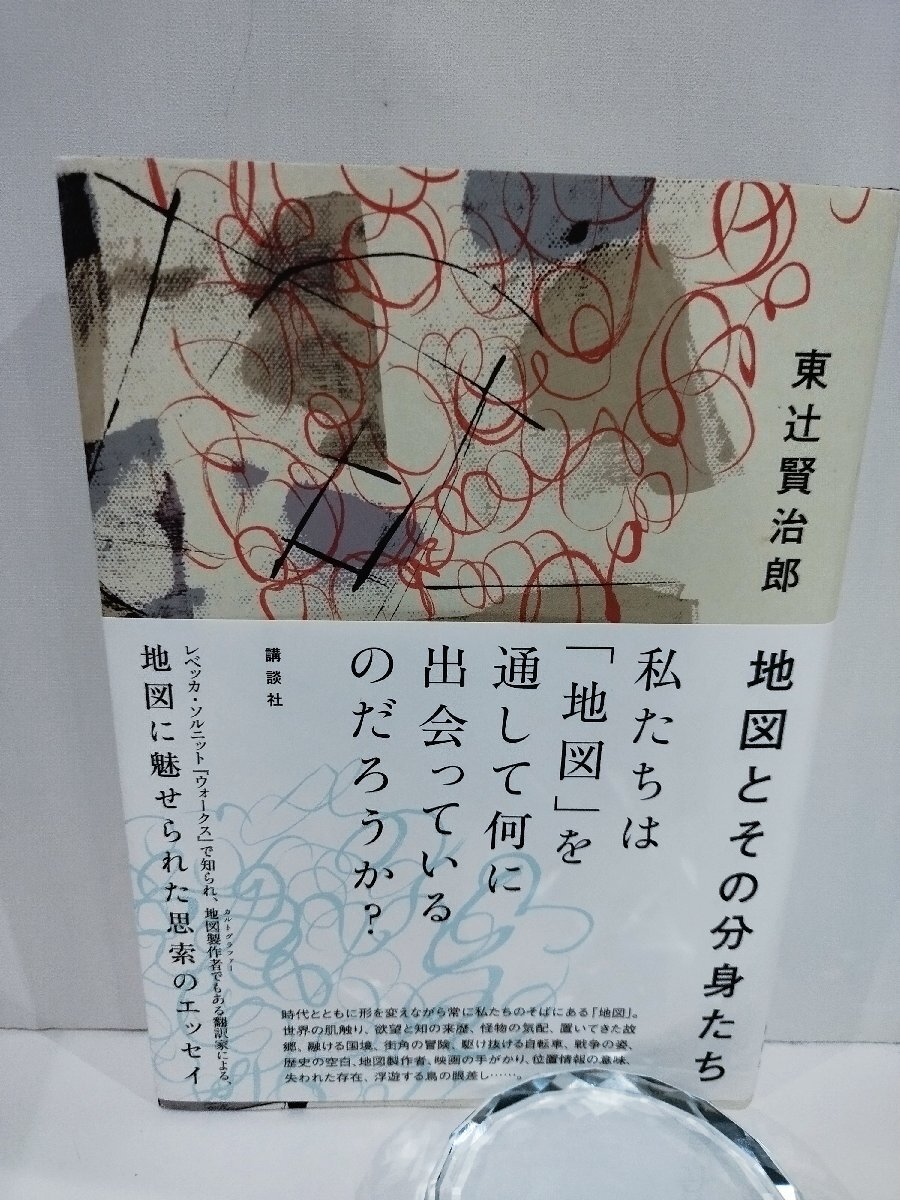 東辻賢治郎
地図とその分身たち
私たちは
「地図」を
通して何に
出会っている
のだろうか?
講談社
レベッカ・ソルニット『ウォークス』で知られ、地図製作者でもある翻訳家による、
カルトグラファー
地図に魅せられた思索のエッセイ
時代とともに形を変えながら常に私たちのそばにある「地図」。
世界の肌触り、欲望と知の来歴、怪物の気配、置いてきた故
郷、融ける国境、街角の冒険、駆け抜ける自転車、戦争の姿、
歴史の空白、地図製作者、映画の手がかり、位置情報の意味、
失われた存在、浮遊する鳥の眼差し……。